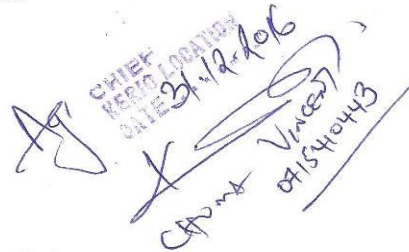 Ag
CHIEF
KERIO LOCATION
DATE 31.12.2016
VINCENT
0715410443